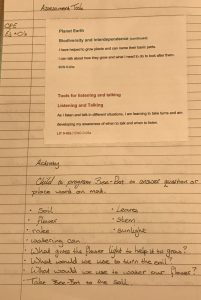 Assessment Task
OPE
E's + O's
Planet Earth
Biodiversity and interdependence (continued)
I have helped to grow plants and can name their basic parts.
I can talk about how they grow and what I need to do to look after them.
SCN 0-03a
Tools for listening and talking
Listening and Talking
As I listen and talk in different situations, I am learning to take turns and am
developing my awareness of when to talk and when to listen.
LIT 0-02a / ENG 0-03a
Activity
Child to program Bee-Bot to answer question or
place word on mat.
• Soil
• Leaves
• Flower
• Stem
• rake
• sunlight
• watering can
• What gives the flower light to help it to grow?
• What would we use to turn the soil?
• What would we use to water our flower?
• Take Bee-Bot to the soil.